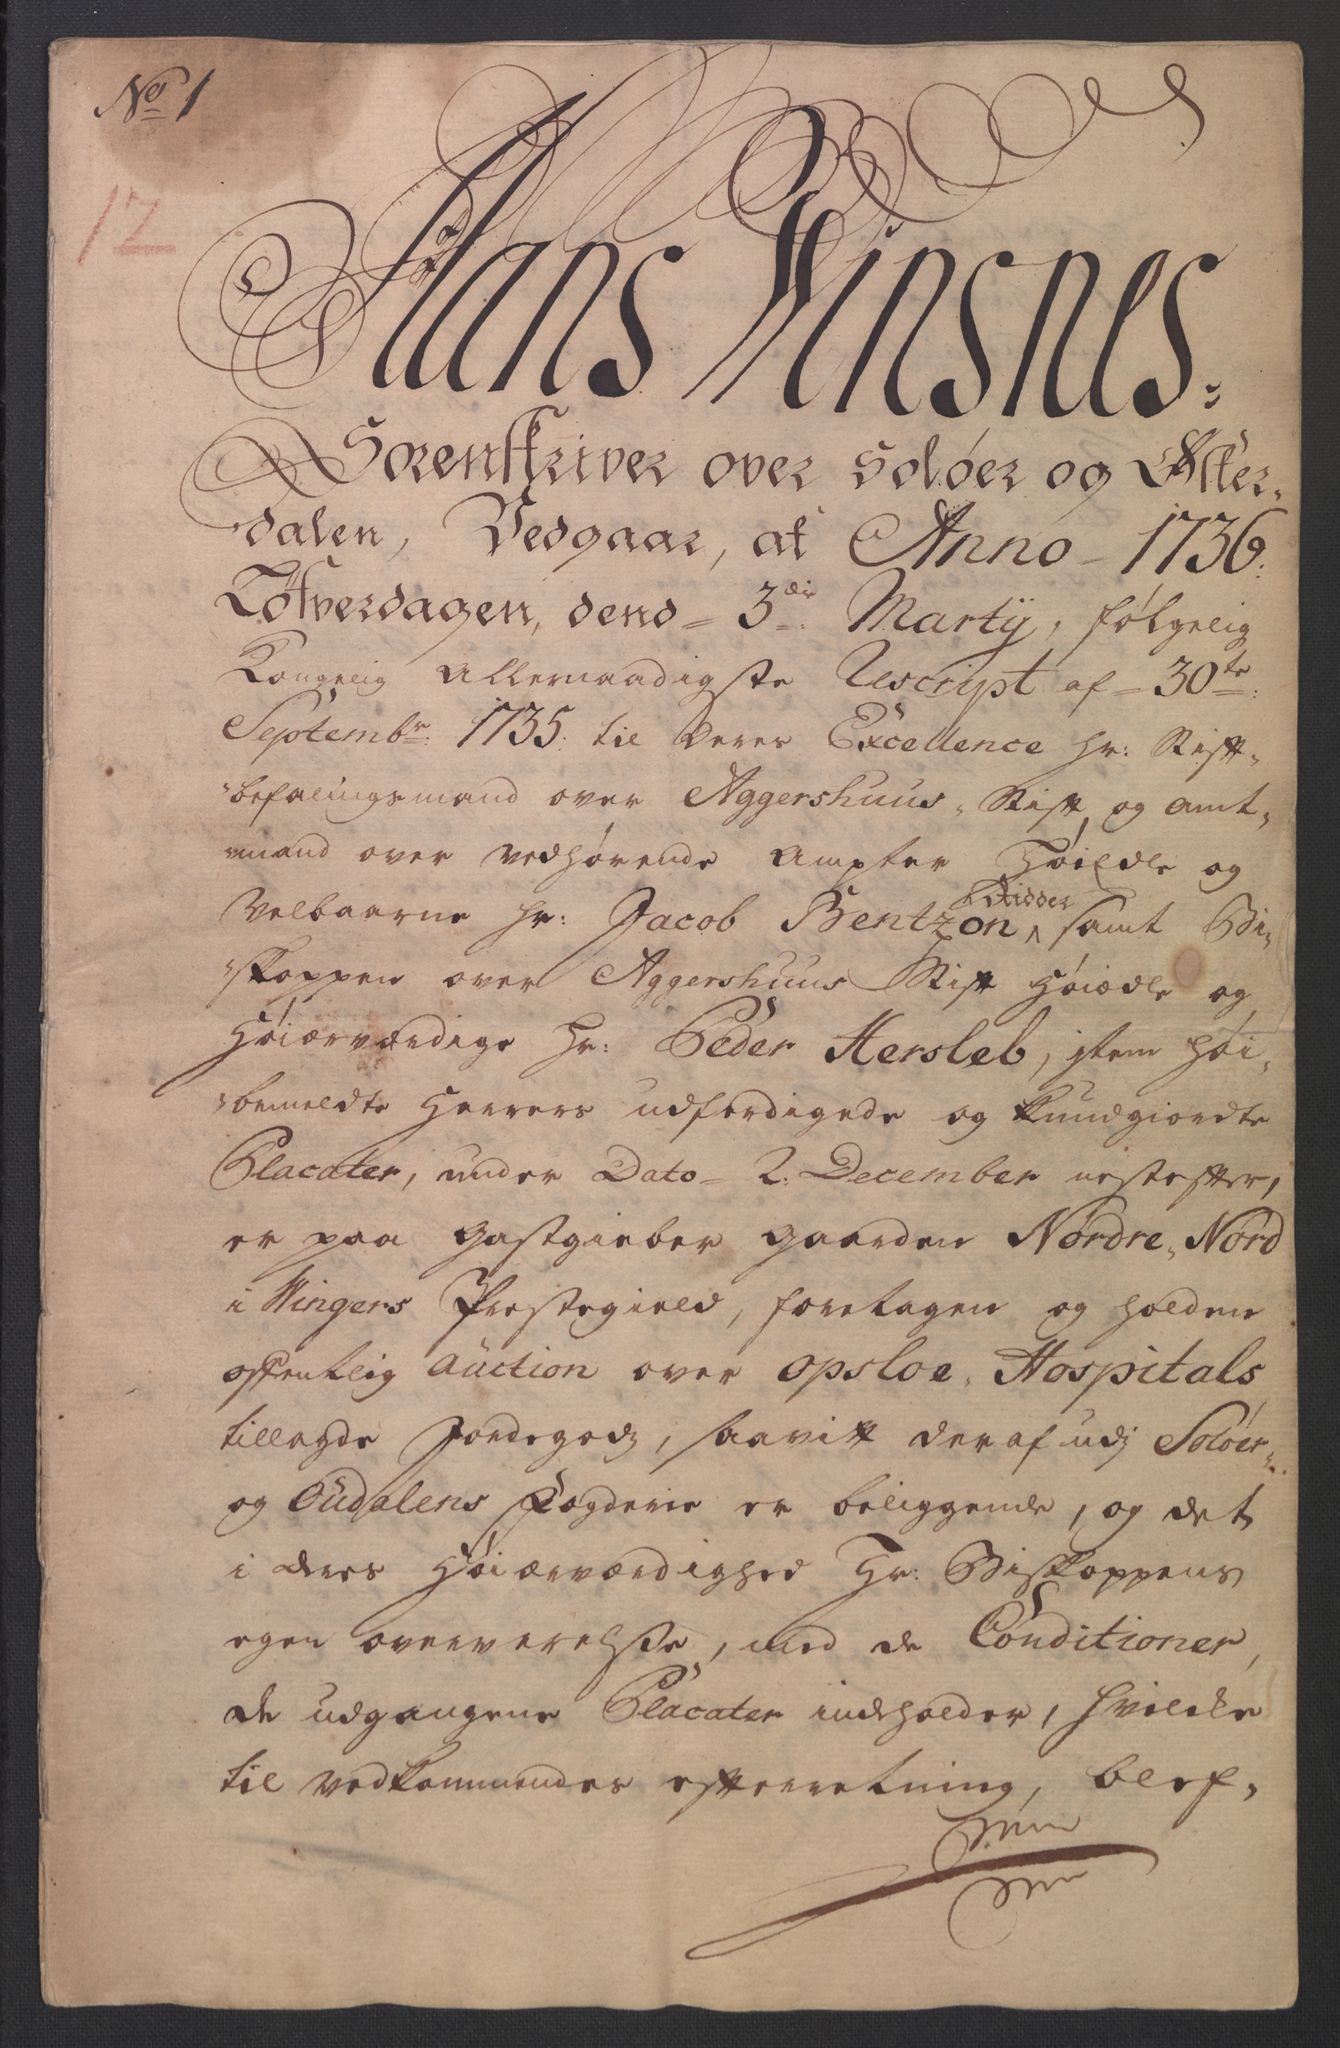 No 1
12
Hans Winsnes
Sorenskriver over Soløer og Øster-
dalen, Vedgaar, at Anno 1736.
Løfverdagen, dend 3die Martÿ, følgelig
Kongelig allernaadigste Rescript af 30te
Septembr: 1735. til deres Excellence Hr: Stift-
befalingsmand over Aggershuus Stift, og amt-
mand over vedhørende Ampter Høiædle og
Velbaarne Hr: Jacob Bentzon, Ridder samt Bi-
skoppen over Aggershuus Stift Høiædle og
Høiærværdige Hr: Peder Hersleb, jtem høi-
bemeldte Herrers udferdigede og kundgiordte
Placater, under Dato 2. December nestefter,
er paa gastgieber gaarden Nordre Nord
i Wingers Prestegield, foretagen og holden
offentlig auction over Opsloe Hospitals
tillagde Jordegodz, saavitt deraf udj Soløer
og Oudalens Fogderie er beliggende, og det
i deres Høiærværdighed Hr: Biskoppens
egen overværelse, med de Conditioner,
de udgangene Placater indeholder, hvilcke
til vedkommendes efterretning, blef